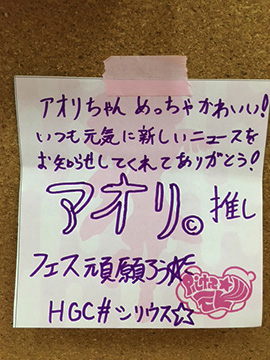 アオリちゃん めっちゃかわいい!
いつも元気に新しいニュースを
お知らせしてくれてありがとう!
アオリ。推し
フェス頑願ろうね
HGC#シリウス☆☆